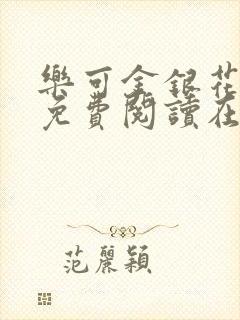 樂可金銀花
免費閱讀在
范麗穎